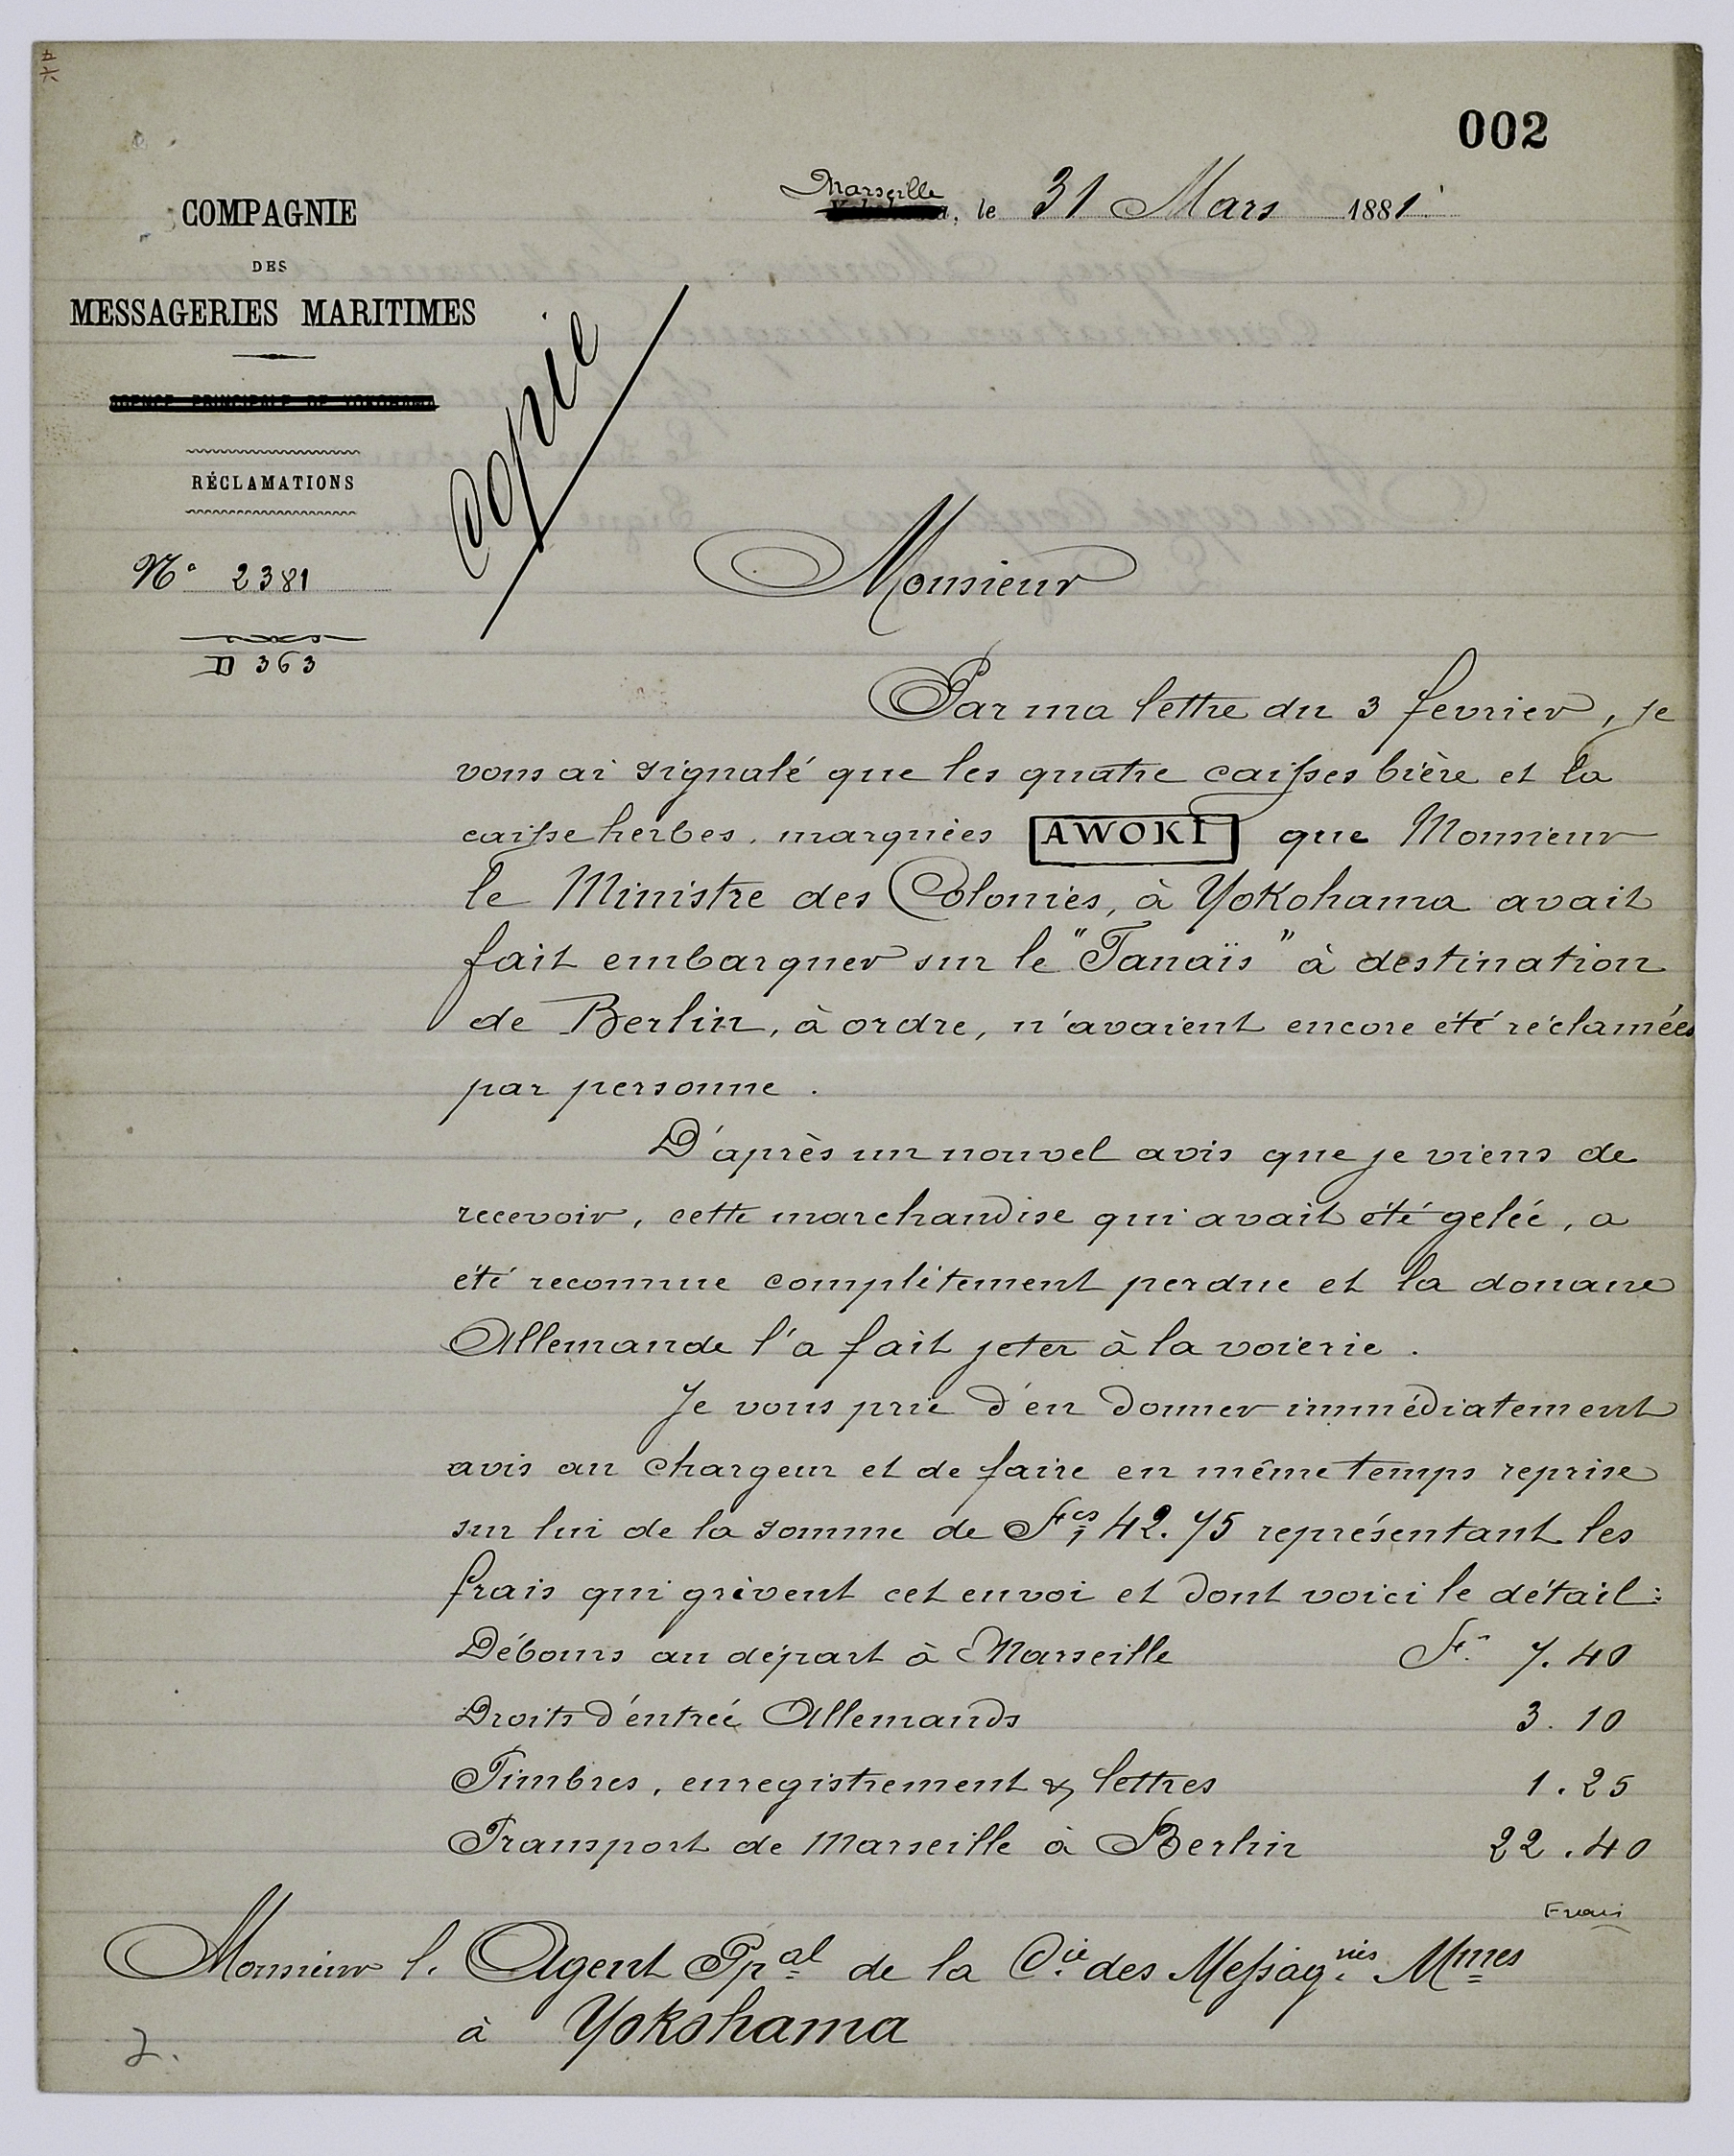 002
Marseille, le 31 Mars 1881
COMPAGNIE
DES
MESSAGERIES MARITIMES
AGENCE PRINCIPALE DE YOKOHAMA
RÉCLAMATIONS
Copie
N° 2381
D 363
Monsieur
Par ma lettre du 3 fevrier, je
vous ai signalé que les quatre caisses bière et la
caisse herbes, marquées AWOKI que Monsieur
le Ministre des Colonies, à Yokohama avait
fait embarquer sur le "Tanaïs" à destination
de Berlin, à ordre, n'avaient encore été réclamées
par personne.
D'après un nouvel avis que je viens de
recevoir, cette marchandise qui avait été gelée, a
été reconnue complètement perdue et la douane
Allemande l'a fait jeter à la voierie.
Je vous prie d'en donner immédiatement
avis au chargeur et de faire en même temps reprise
sur lui de la somme de Fcs, 42.75 représentant les
frais qui grèvent cet envoi et dont voici le détail:
Débours au départ à Marseille F. 7.40
Droits d'entrée Allemands 3.10
Timbres, enregistrement & lettres 1.25
Transport de Marseille à Berlin 22.40
Frais
Monsieur l. Agent Ppal de la Cie des Messagries Mmes
à Yokohama